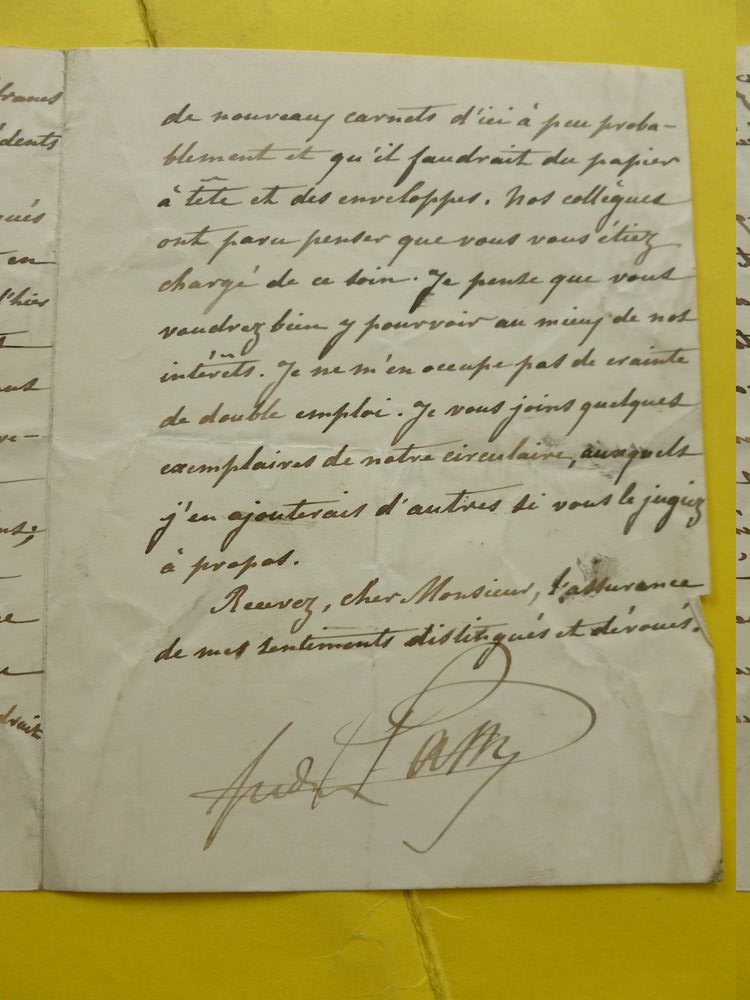 francs
dents
gués
en
d'hier
de nouveaux carnets d'ici à peu proba-
blement et qu'il faudrait du papier
à tête et des enveloppes. Nos collègues
ont paru penser que vous vous étiez
chargé de ce soin. Je pense que vous
voudrez bien y pourvoir au mieux de nos
intérêts. Je ne m'en occupe pas de crainte
de double emploi. Je vous joins quelques
exemplaires de notre circulaire, auxquels
j'en ajouterais d'autres si vous le jugiez
à propos.
Recevez, cher Monsieur, l'assurance
de mes sentiments distingués et dévoués.
Fréd Passy